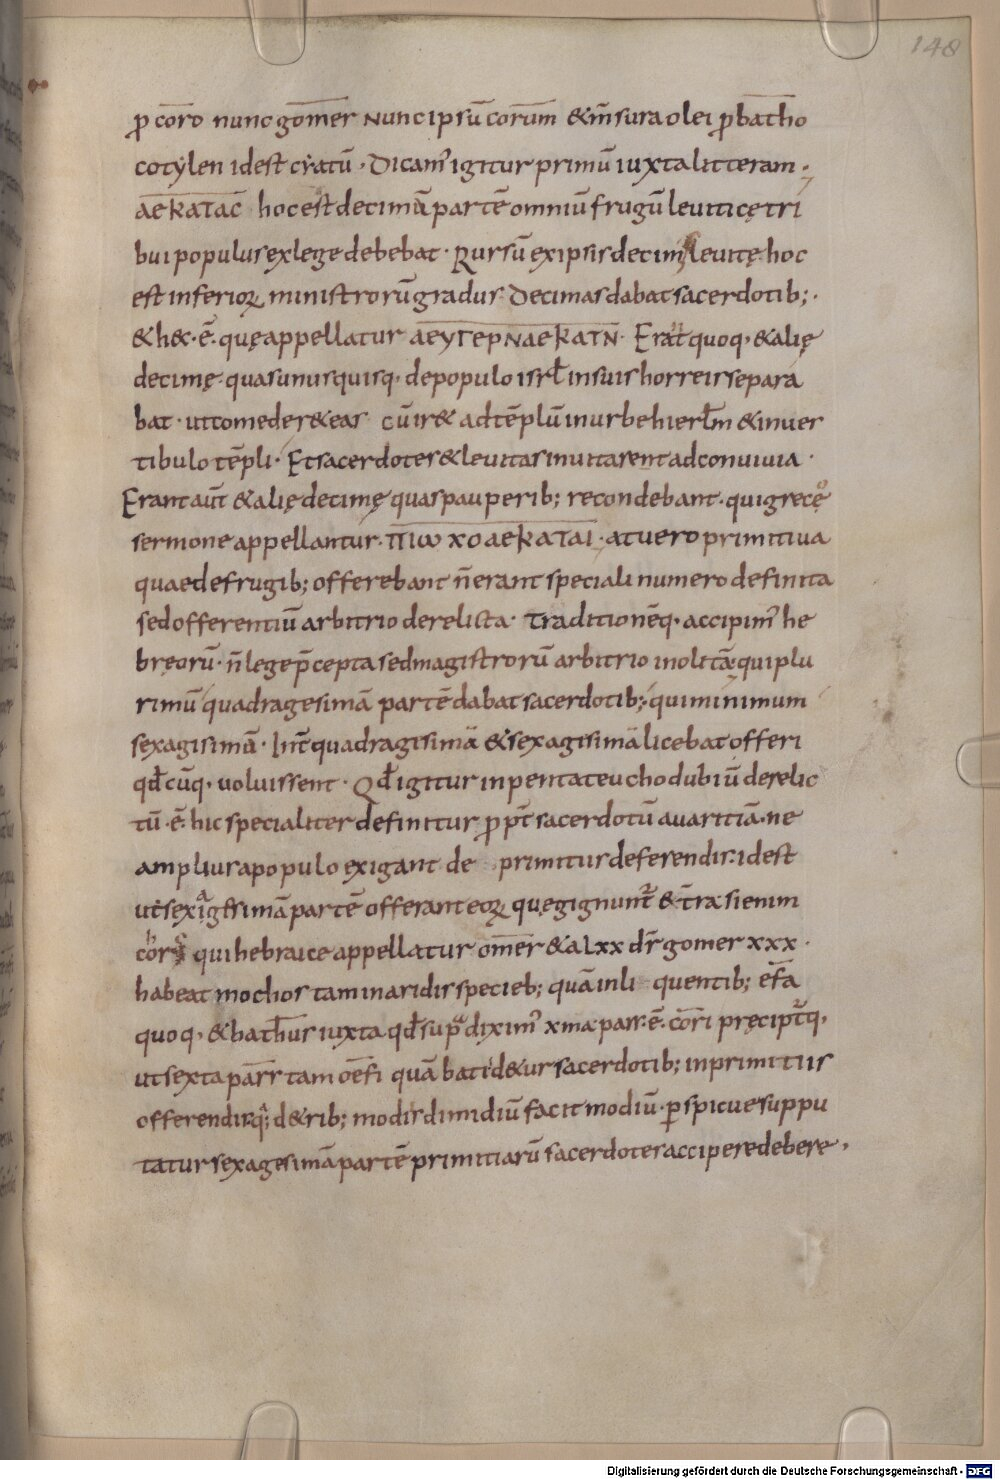 148
ꝓ coro nunc gomer Nunc ipsū corum &m̄sura olei ꝓ batho
cotylen id est cyatū · Dicam᾽ igitur primū iuxta litteram ·
aekaTac hoc est decimā partē omniū frugū leuiticę tri
bui populus ex lege debebat · Rursū ex ipsis decimis leuitę hoc
est inferioꝝ ministrorū gradus · Decimas dabat sacerdotib; ·
& hęc · ē · quę appellatur aeyTepNaekaTN · Erat quoq· & alię
decimę · quas unusquisq· de populo isrł in suis horreis separa
bat · ut comeder& eas cū ir& ad tēplū in urbe hierlm̄ & in ues
tibulo tēpli · Et sacerdotes & leuitas inuitarent ad conuiuia ·
Erant aut̄ & alię decimę quas pauperib; recondebant · qui gręco
sermone appellantur · πΤωχοaekaTai · at uero primitiua
quae de frugib; offerebant n̄ erant speciali numero definita
sed offerentiū arbitrio derelicta · Traditionēq· accipim᾽ he
bręorū · n̄ lege p̄cepta sed magistrorū arbitrio inolitā · qui plu
rimū quadragesimā partē dabat sacerdotib; · qui minimum
sexagisimā · Int̄ quadragisimā & sexagisimā licebat offeri
qđcūq· uoluissent · Qđ igitur in pentateucho dubiū derelic
tū · ē · hic specialiter definitur ꝓpt̄ sacerdotū auaritiā · ne
amplius a populo exigant de primitiis deferendis · id est
ut sexagesimā partē offerant eoꝝ quę gignunt᷑ & t̄ra si enim
chorus qui hebraice appellatur omer & a lxx dr̄ gomer xxx ·
habeat mochos tam in aridis specieb; quā in liquentib; efa
quoq· & bathus iuxta qđ supra dixim᾽ xma pars · ē · cori pręcipit᷑q·
ut sexta pars tam oefi quā bati d&ur sacerdotib; in primitiis
offerendis · q; d& rib; modis dimidiū facit modiū · ꝑspicue suppu
tatur sexagesimā partē primitiarū sacerdotes accipere debere ·
Digitalisierung gefördert durch die Deutsche Forschungsgemeinschaft - DFG